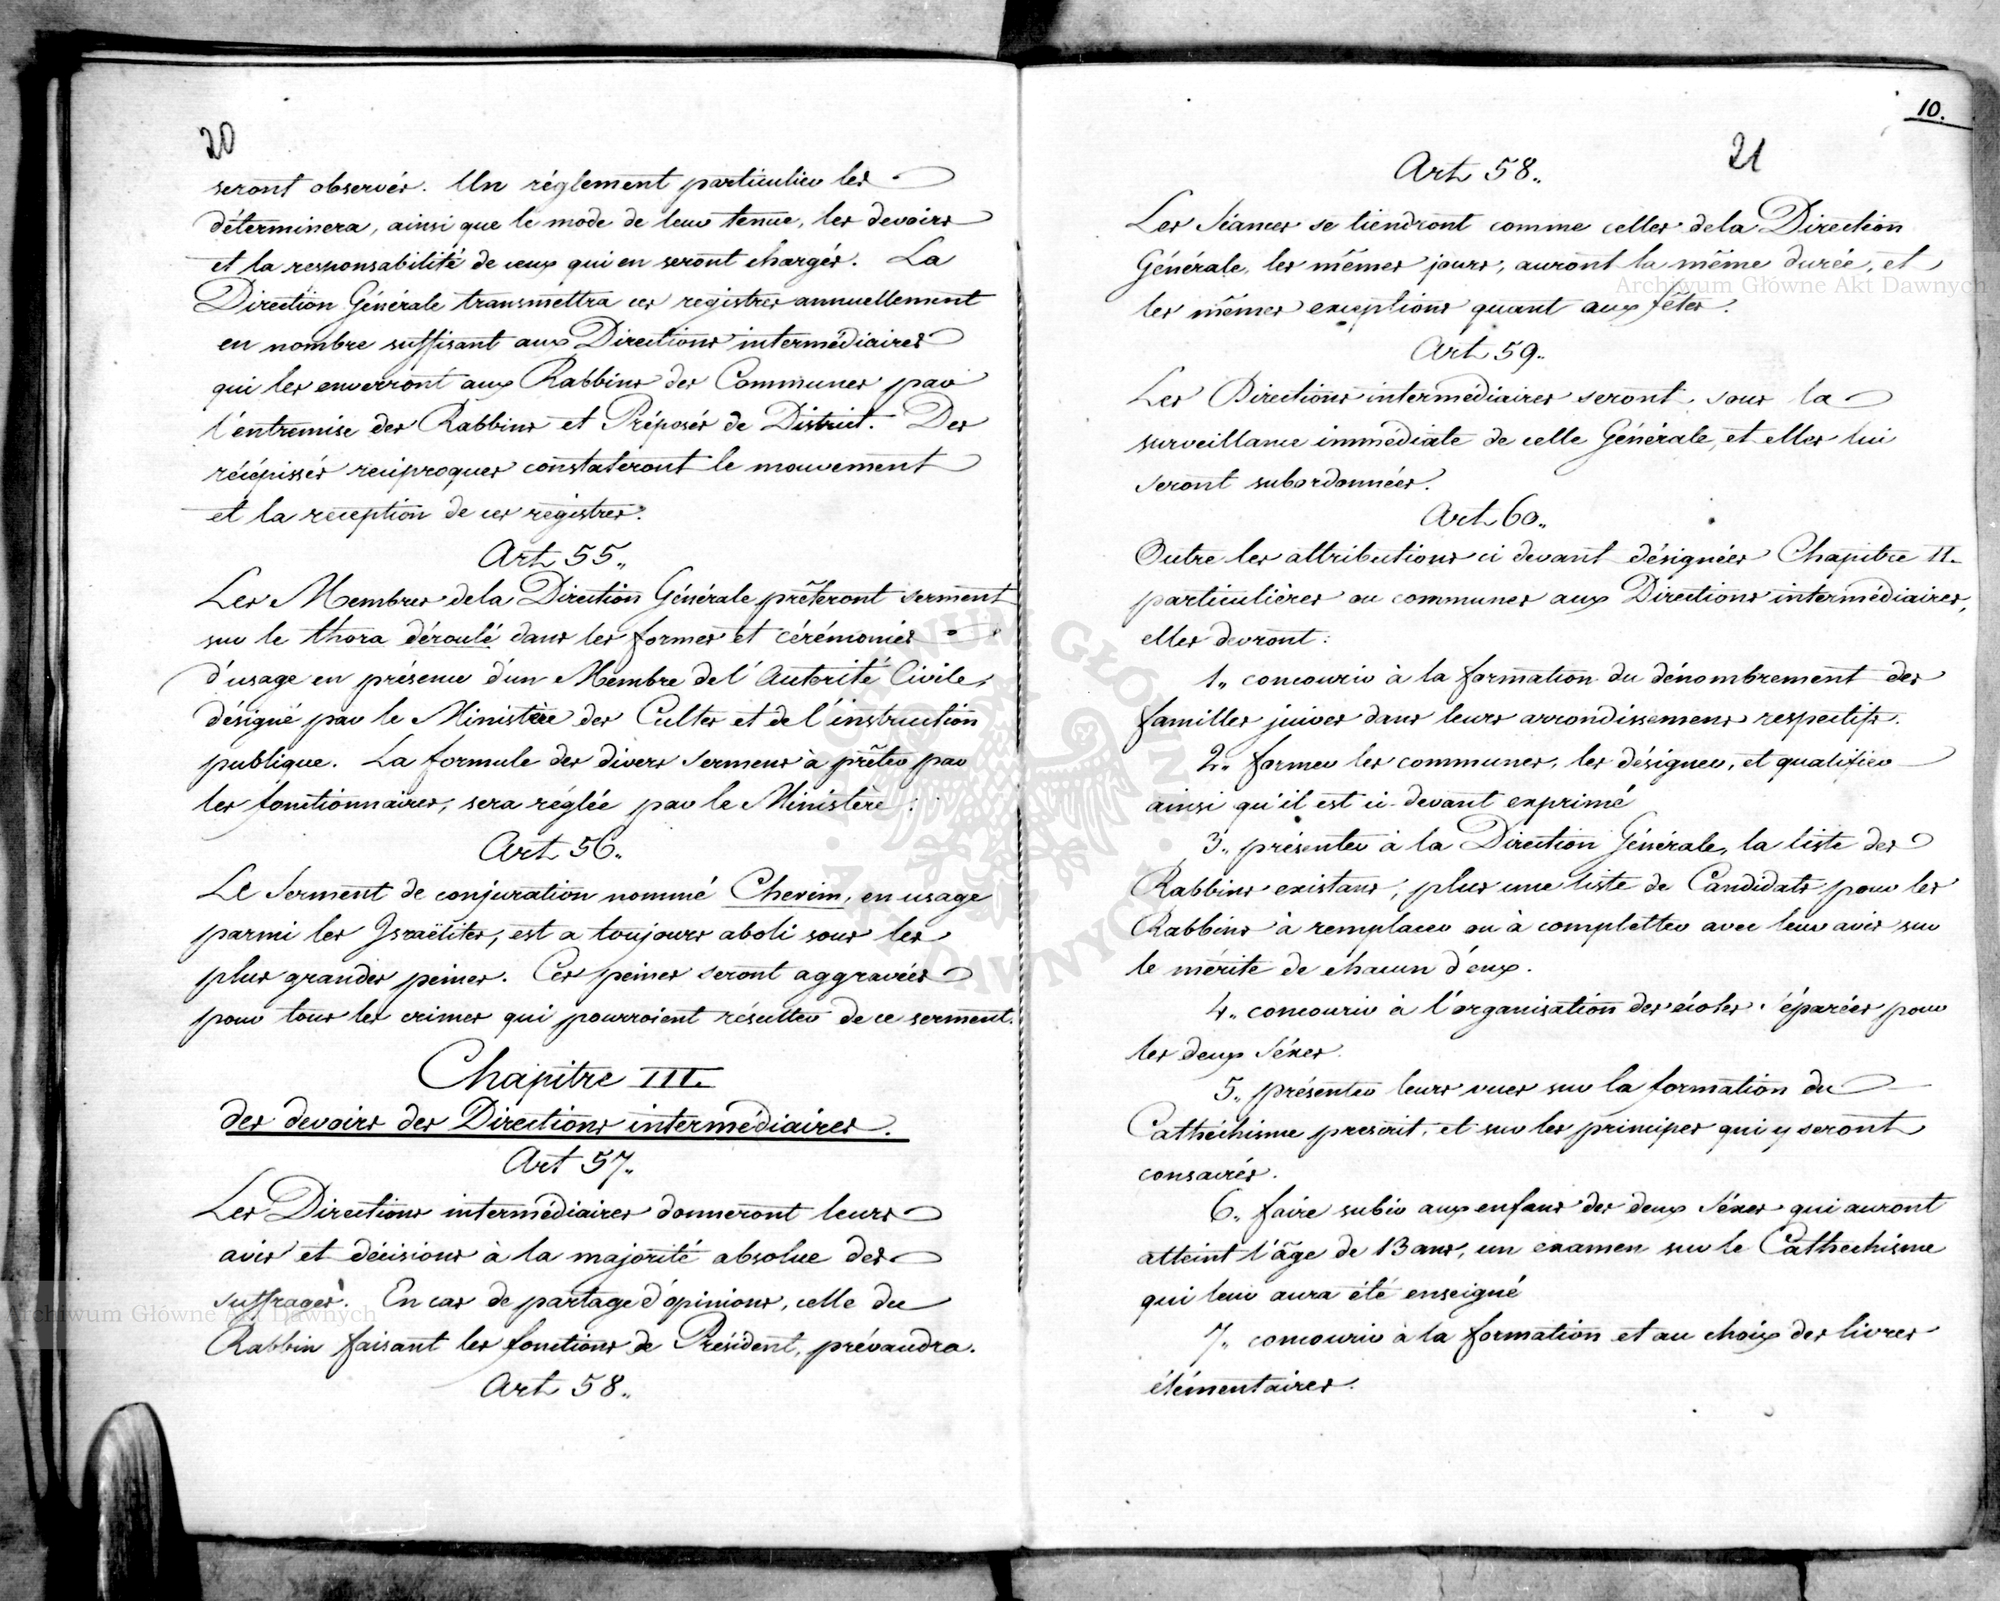 20
seront observés. Un réglement particulier les
déterminera, ainsi que le mode de leur tenue, les devoirs
et la responsabilité de ceux qui en seront chargés. La
Direction Générale transmettra ces registres annuellement
en nombre suffisant aux Directions intermédiaires
qui les enverront aux Rabbins des Communes par
l'entremise des Rabbins et Préposés de District. Des
récépissés reciproques constateront le mouvement
et la reception de ces registres.
Art 55.
Les Membres de la Direction Générale prêteront serment
sur le thora déroulé dans les formes et cérémonies
d'usage en présence d'un Membre de l'Autorité Civile,
désigné par le Ministère des Cultes et de l'instruction
publique. La formule des divers sermens à prêter par
les fonctionnaires, sera réglée par le Ministère.
Art 56.
Le Serment de conjuration nommé Cherim, en usage
parmi les Israëlites, est a toujours aboli sous les
plus grandes peines. Ces peines seront aggravées
pour tous les crimes qui pourroient résulter de ce serment.
Chapitre III.
des devoirs des Directions intermédiaires.
Art 57.
Les Directions intermédiaires donneront leurs
avis et décisions à la majorité absolue des
suffrages. En cas de partage d'opinions, celle du
Rabbin faisant les fonctions de Président, prévaudra.
Art 58.
10.
21
Art 58.
Les Séances se tiendront comme celles de la Direction
Générale, les mêmes jours, auront la même durée, et
les mêmes exceptions quant aux fêtes.
Art 59.
Les Directions intermédiaires seront sous la
surveillance immédiate de celle Générale, et elles lui
seront subordonnées.
Art 60.
Outre les attributions ci devant désignées Chapitre II.
particulières ou communes aux Directions intermédiaires,
elles devront:
1. concourir à la formation du dénombrement des
familles juives dans leurs arrondissemens respectifs.
2. former les communes, les désigner, et qualifier
ainsi qu'il est ci-devant exprimé
3. présenter à la Direction Générale, la liste des
Rabbins existans, plus une liste de Candidats pour les
Rabbins à remplacer ou à completter avec leur avis sur
le mérite de chacun d'eux.
4. concourir à l'organisation des écoles séparées pour
les deux Séxes.
5. présenter leurs vues sur la formation du
Cathéchisme prescrit, et sur les principes qui y seront
consacrés.
6. faire subir aux enfans des deux Séxes qui auront
atteint l'âge de 13 ans, un examen sur le Cathechisme
qui leur aura été enseigné
7. concourir à la formation et au choix des livres
élémentaires.
Archiwum Główne Akt Dawnych
Archiwum Główne Akt Dawnych
ARCHIWUM GŁÓWNE AKT DAWNYCH